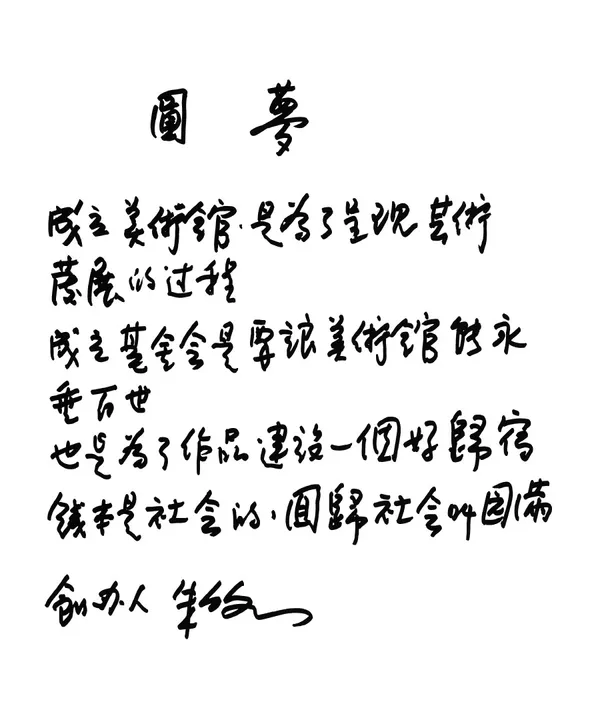 圓 夢
成立美術館.是為了呈現芸術
發展的过程
成立基金会是要讓美術館能永
垂百世
也是為了作品建設一個好歸宿
錢本是社会的,回歸社会叫圆滿
創办人 朱銘